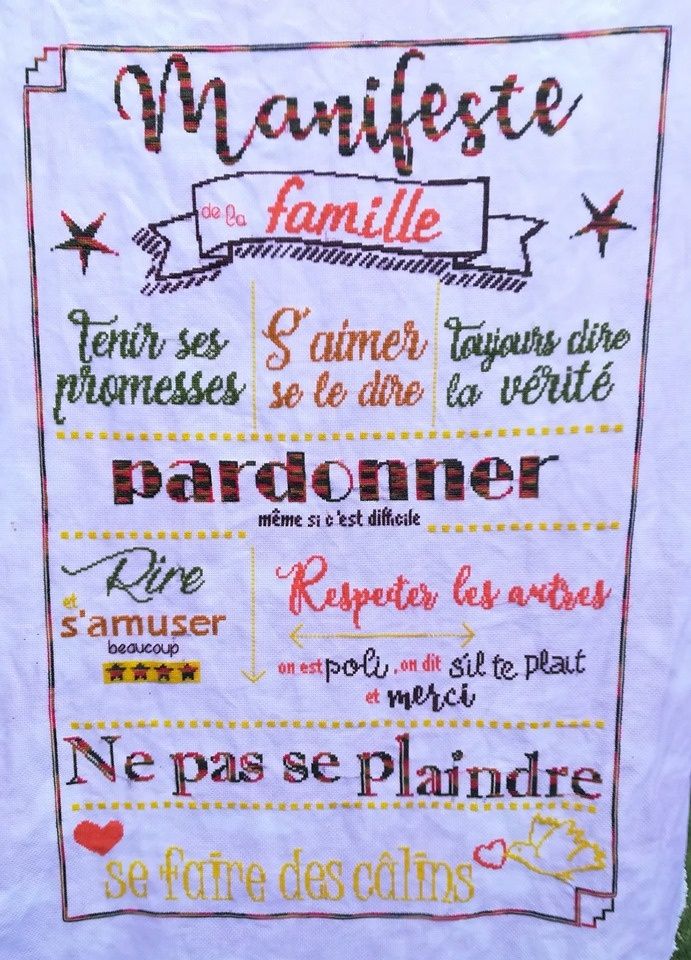 Manifeste
de la famille
Tenir ses
promesses
S'aimer
se le dire
Toujours dire
la vérité
pardonner
même si c'est difficile
Rire
et
s'amuser
beaucoup
Respecter les autres
on est poli, on dit s'il te plaît
et merci
Ne pas se plaindre
se faire des câlins